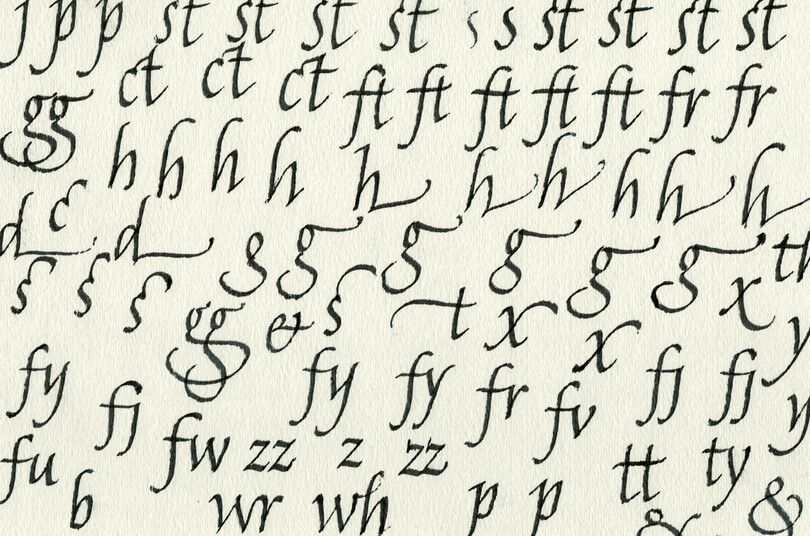 j p p st st st st s s st st st st
ct ct ct ft ft ft ft ft fr fr
gg h h h h h h h h h h
d d g g g g g g th
s s s gg & s t x x x y
fy fj fy fy fr fv fj fj y
fu fw zz z zz tt ty
b wr wh p p & &